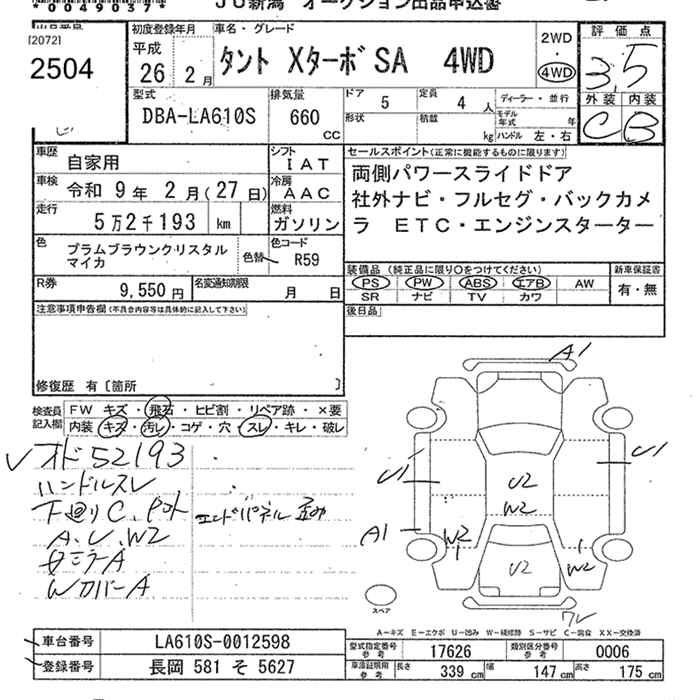 *0049037*
JU新潟 オークション出品申込書
[2072]
2504
初度登録年月
平成
26 年 2 月
車名・グレード
タント XターボSA 4WD
2WD
4WD
評価点
3.5
外装 内装
C B
型式
DBA-LA610S
排気量
660
CC
ドア 5
定員 4 人
形状
積載 kg
ディーラー・並行
モデル年式 年
ハンドル 左・右
車歴 自家用
シフト IAT
車検 令和 9 年 2 月(27 日)
冷房 AAC
走行 5万2千193 km
燃料 ガソリン
色 プラムブラウンクリスタル
マイカ
色替
色コード R59
R券 9,550 円
名変通知期限 月 日
セールスポイント(正常に機能するものに限ります)
両側パワースライドドア
社外ナビ・フルセグ・バックカメ
ラ ETC・エンジンスターター
装備品(純正品に限り〇をつけてください)
PS PW ABS エアB AW
SR ナビ TV カワ
新車保証書
有・無
後日品
注意事項申告欄(不具合内容等は具体的に記入して下さい)
修復歴 有〔箇所 〕
検査員記入欄
FW キズ・飛石・ヒビ割・リペア跡・×要
内装 キズ・汚レ・コゲ・穴・スレ・キレ・破レ
オド52193
ハンドルスレ
下廻りC、
エンドパネル歪み
A、U、W2
WカバーA
A1
U1
U1
A1
U2
W2
W2
U2
W2
スペア
A-キズ E-エクボ U-凹み W-補修跡 S-サビ C-腐食 XX-交換済
車台番号 LA610S-0012598
登録番号 長岡 581 そ 5627
型式指定番号参考 17626
類別区分番号参考 0006
車庫証明用参考 長さ 339 cm 幅 147 cm 高さ 175 cm